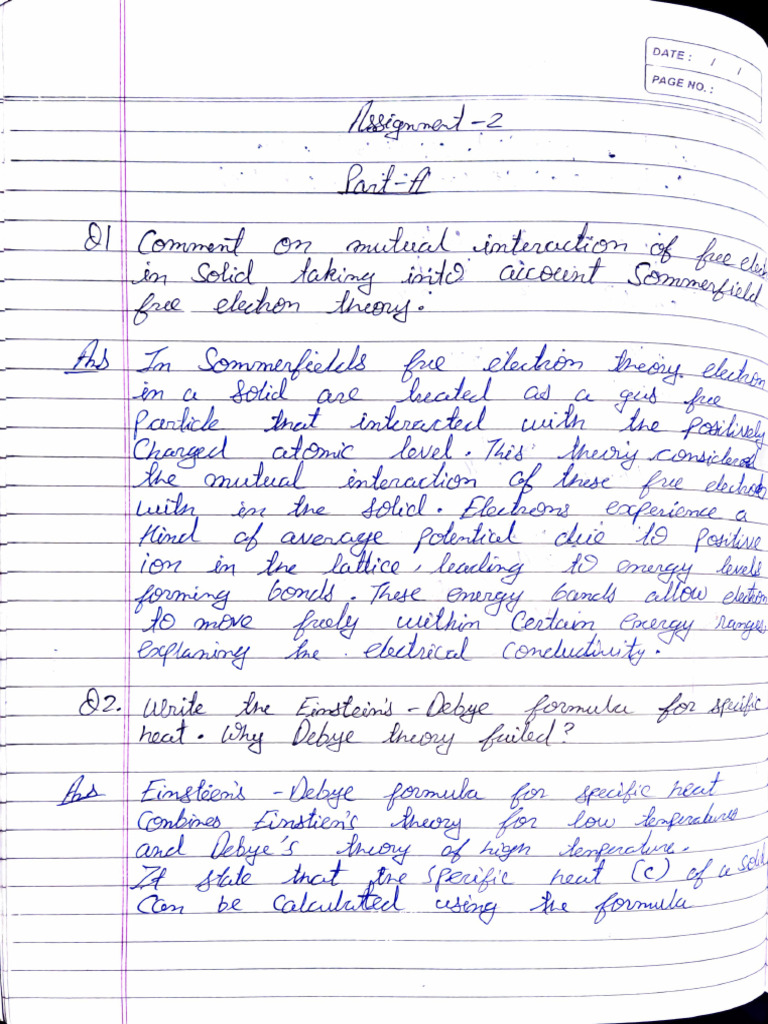 DATE: / /
PAGE NO.:
Assignment-2
Part-A
Q1 Comment on mutual interaction of free elec
in Solid taking into account Sommerfield
free electron theory.
Ans In Sommerfields free election theory electron
in a solid are treated as a gas free
Particle that interacted with the positively
Charged atomic level. This theory considered
the mutual interaction of these free electron
with in the solid. Electrons experience a
Kind of average potential due to positive
ion in the lattice, leading to energy levels
forming bonds. These energy bands allow electron
to move freely within Certain energy ranges
explaning the electrical conductivity.
Q2. Write the Einstein's-Debye formula for specific
heat. Why Debye theory failed?
Ans Einstéen's -Debye formula for specific heat
Combines Einstien's theory for low temperatures
and Debye's theory of high temperature.
It state that the specific heat (c) of a solid
Can be calculatted using the formula